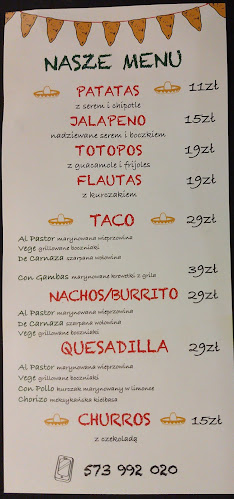 NASZE MENU
PATATAS 11zł
z serem i chipotle
JALAPENO 15zł
nadziewane serem i boczkiem
TOTOPOS 19zł
z guacamole i frijoles
FLAUTAS 19zł
z kurczakiem
TACO 29zł
Al Pastor marynowana wieprzowina
Vege grillowane boczniaki
De Carnaza szarpana wołowina
Con Gambas marynowane krewetki z grilla 39zł
NACHOS/BURRITO 29zł
Al Pastor marynowana wieprzowina
De Carnaza szarpana wołowina
Vege grillowane boczniaki
QUESADILLA 29zł
Al Pastor marynowana wieprzowina
Vege grillowane boczniaki
Con Pollo kurczak marynowany w limonce
Chorizo meksykańska kiełbasa
CHURROS 15zł
z czekoladą
573 992 020